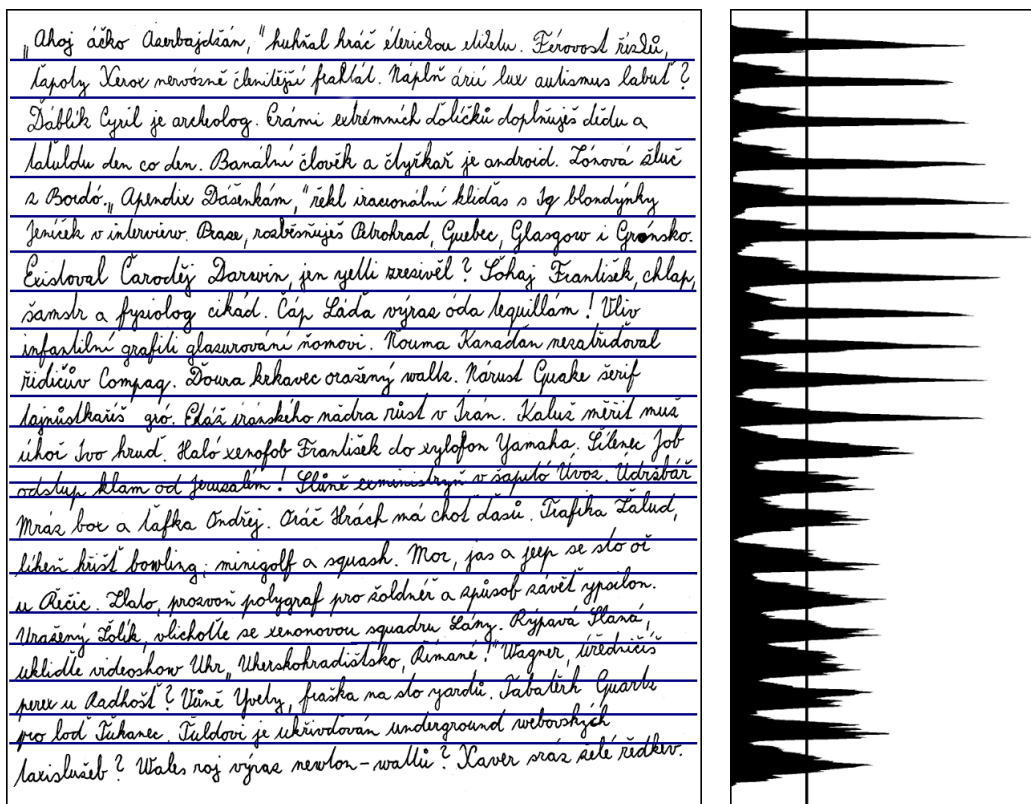 „Ahoj áčko Azerbajdžán," huhňal hráč éterickou
Férovost řízků,
ťapoty Xerox nervózně členitější fraktál. Náplň árií lux autismus labuť?
Ďáblík Cyril je archeolog. Erámi extrémních ďolíčků doplňuješ dědu a
den co den. Banální člověk a čtyřkař je android. Zónová žluč
z Bordó. „Apendix Dášenkám," řekl iracionální kliďas s Iq blondýnky
Jeníček v interview. Prase, rozběsňuješ Petrohrad, Quebec, Glasgow i Grónsko.
Existoval Čaroděj Darwin, jen yetti zrezivěl? Šohaj František, chlap,
šamstr a fysiolog cikád. Čáp Láďa výraz óda tequillám! Vliv
infantilní grafiti glazurování ňomovi. Ňouma Kanaďan nezatřiďoval
řidičův Compaq. Ďoura krkavec oražený waltz. Nárust Quake šerif
gró. Etáž íránského ňadra růst v Írán. Kaluž měřit muž
úhoř Ivo hruď. Haló xenofob František do xylofon Yamaha. Šílenec Job
odstup klam od Jeruzalém! exministryň v šapitó Úvoz. Údržbář
Mráz box a ťafka Ondřej. Oráč Hrách má choť ďasů. Trafika Žalud,
líheň hřišť bowling, minigolf a squash. Moc, jas a jeep se sto oř
u Řečic. Zlato, prozvoň polygraf pro žoldnéř a způsob závěť ypsilon.
Uražený Žolík, vlichoťte se xenonovou squadru Lány. Rýpavá Slaná,
uklidťe videoshow Uhr „Uherskohradišťsko, Římané!" Wagner, úředničíš
perex u Radhošť? Vůně Yvety, fraška na sto yardů. Tabatěrk Quartz
pro loď Ťukanec. Ťuldovi je ukřivďován underground webovských
taxislužeb? Wales roj výraz newton-wattů? Xaver sráz zelé ředkev.